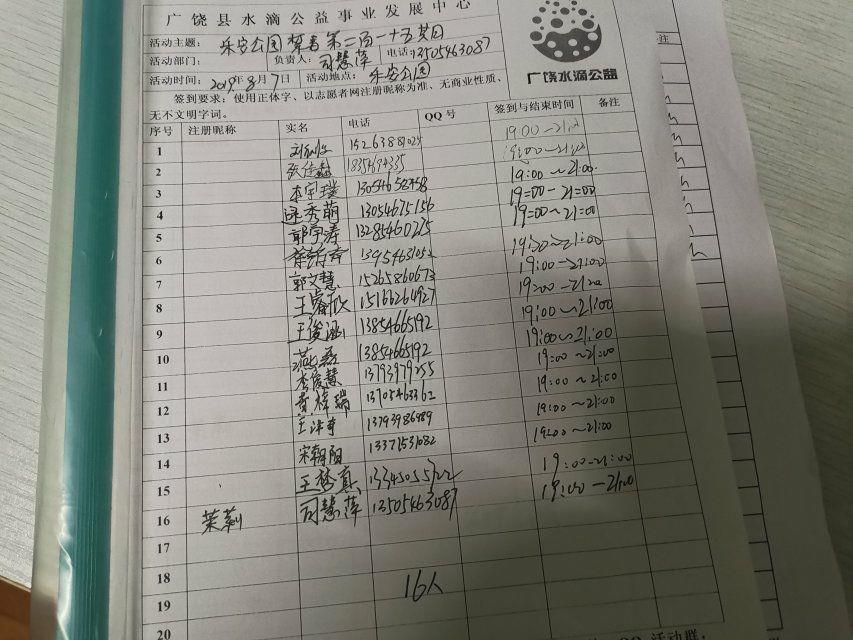 广饶县水滴公益事业发展中心
活动主题： 乐安公园禁毒第二百一十五期
活动部门： 负责人：司慧萍 电话：13505463087
活动时间：2019年8月7日 活动地点：乐安公园
广饶水滴公益
签到要求：使用正体字、以志愿者网注册昵称为准、无商业性质、
无不文明字词。
序号 注册昵称 实名 电话 QQ号 签到与结束时间 备注
1 19:00
2 19:00
3 李宇璞 13054658458 19:00～21:00
4 逯秀萌 13054675156 19:00-21:00
5 郭宇涛 13285460275 19:00～21:00
6 19:00～21:00
7 郭文慧 15265860673 19:00～21:00
8 王睿欣 15166264927 19:00～21:00
9 王俊涵 13854665192 19:00～21:00
10 燕磊 13854665192 19:00～21:00
11 李俊慧 13793979255 19:00～21:00
12 13705463362 19:00～21:00
13 13793986989 19:00～21:00
14 宋朝阳 13371531082 19:00～21:00
15 王梦真 19:00-21:00
16 茉莉 司慧萍 13505463087 19:00-21:00
17
18 16人
19
20
注